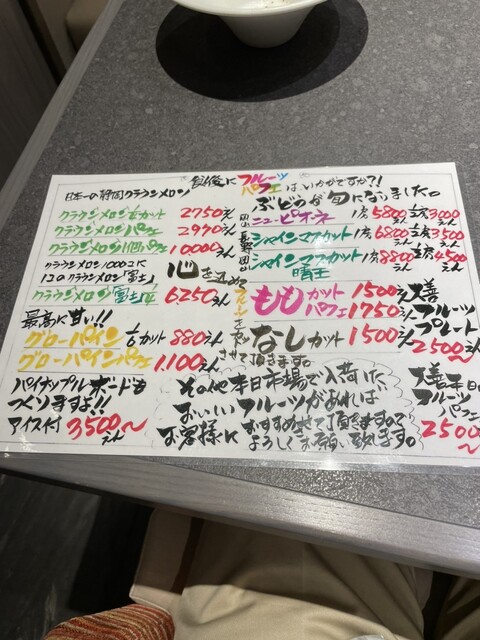 食後にフルーツパフェはいかがですか?!
日本一の静岡クラウンメロン
ぶどうが旬になりました。
クラウンメロン カット 2750えん
クラウンメロンパフェ 2970えん
クラウンメロン1個パフェ 10000えん
クラウンメロン1000コに
1コのクラウンメロン「富士」
クラウンメロン富士 6250えん
岡山 ニューピオーネ 1房5800えん 3000えん
長野 シャインマスカット 1房6800えん 3500えん
岡山 シャインマスカット晴王 1房8800えん 4500えん
心を込めて
させて頂きます。
ももカット 1500えん
パフェ 1750えん
なしカット 1500えん
大善フルーツプレート
2500えん〜
最高に甘い!!
グローパイン カット 880えん
グローパインパフェ 1,100えん
パイナップルボードも
つくりますよ!!
アイス付 3500えん〜
その他本日市場で入荷した、
おいしいフルーツがあれば
お客様におすすめさせて頂きますので
よろしくお願い致します。
大善
フルーツ
パフェ
2500〜